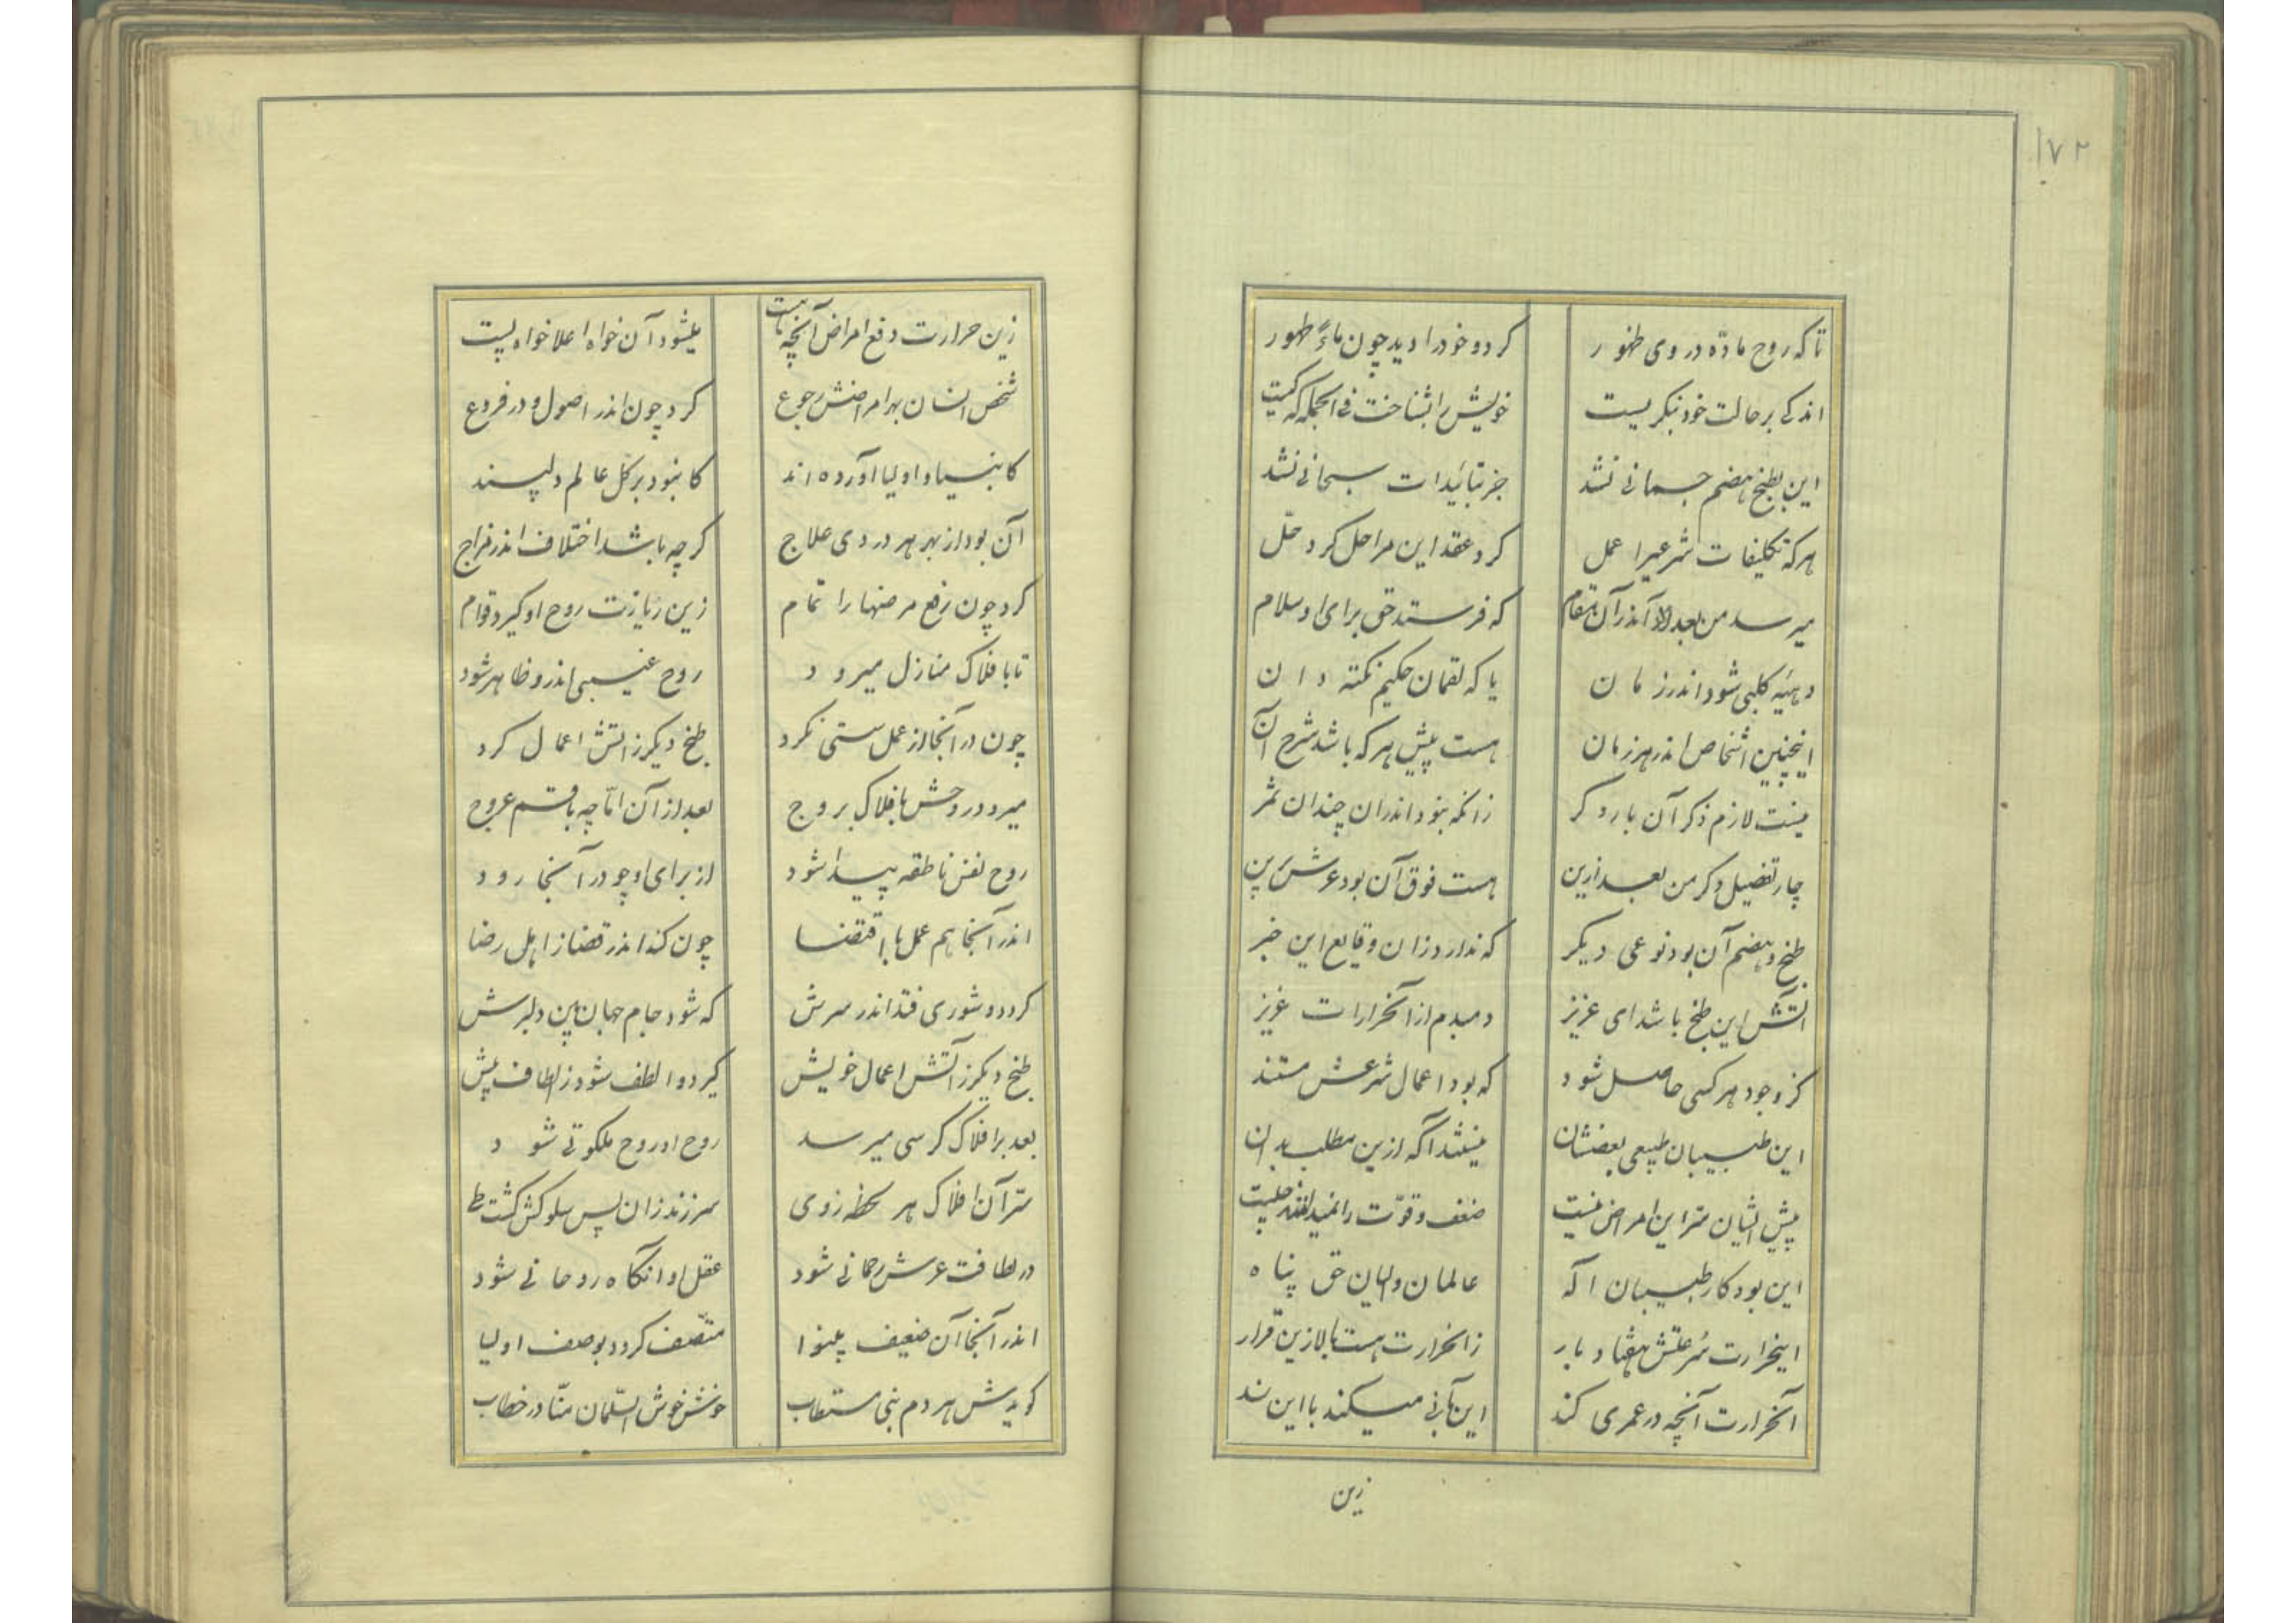 ۱۷۲
تا که روح مادّه در وی ظهور
کرد و خود را دید چون ماءً طهور
اندکی بر حالت خود بنگریست
خویش را بشناخت فی الجمله که کیست
این بطبخ هضم جسمانی نشد
جز بتائیدات سبحانی نشد
هر که تکلیفات شرعیرا عمل
کرد عقد این مراحل کرد حلّ
میرسد من بعد اندر آن مقام
که فرستد حق برای او سلام
دهیّه کلبی شود اندر زمان
یا که لقمان حکیم نکته دان
اینچنین اشخاص اندر هر زمان
هست پیش هر که باشد شرح آن
نیست لازم ذکر آن بار دگر
زانکه نبود اندران چندان ثمر
چار تفضیل دگر من بعد ازین
هست فوق آن بود عرش برین
طبخ و هضم آن بود نوعی دیگر
که ندارد زان وقایع این خبر
آتش این طبخ باشد ای عزیز
دمبدم از آنحرارات غریز
کز وجود هر کسی حاصل شود
که بود اعمال شرعش مستند
این طبیبان طبیعی بعضشان
نیستند آگه ازین مطلب بدان
پیش ایشان سرّ این امراض نیست
ضعف و قوّت را نمیدانند چیست
این بود کار طبیبان اله
عالمان والیان حق پناه
اینحرارت سرعتش هفتاد بار
زانحرارت هست بالا زین قرار
آنحرارت آنچه در عمری کند
این بآنی میکند با این سند
زین
زین حرارت دفع امراض آنچه هست
میشود آن خواه اعلا خواه پست
شخص انسان بهر امراضش رجوع
کرد چون اندر اصول و در فروع
کانبیا و اولیا آورده اند
کانبود بر کل عالم دلپسند
آن بود از بهر هر دردی علاج
گرچه باشد اختلاف اندر مزاج
کرد چون رفع مرضها را تمام
زین ریازت روح او گیرد قوام
تا بافلاک منازل میرود
روح غیبی اندر و ظاهر شود
چون در آنجا از عمل سستی نکرد
طبخ دیگر ز آتش اعمال کرد
میرود روحش بافلاک بروج
بعد از آن امّا چه با قسم عروج
روح نفس ناطقه پیدا شود
از برای او چو در آنجا رود
اندر آنجا هم عمل با اقتضا
چون کند اندر قضا ز اهل رضا
گردد و شوری فتد اندر سرش
که شود جام جهان بین دلبرش
طبخ دیگر ز آتش اعمال خویش
گیرد و الطف شود ز الطاف پیش
بعد بر افلاک کرسی میرسد
روح او روح ملکوتی شود
سرّ آن افلاک هر لحظه ز وی
سرزند زان پس سلوکش گشت طی
در لطافت عرش رحمانی شود
عقل او انگاه روحانی شود
اندر آنجا آن ضعیف بینوا
متّصف گردد بوصف اولیا
گویدش هر دم نبی مستطاب
خوش خوش السّلمان منّا در خطاب